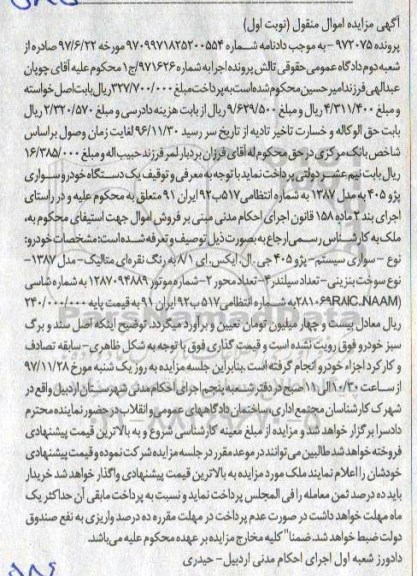 آگهی مزایده اموال منقول (نوبت اول)
پرونده ۹۷۲۰۷۵ - به موجب دادنامه شماره ۹۷۰۹۹۷۱۸۲۵۲۰۰۵۵۴ مورخه ۹۷/۶/۲۲ صادره از
شعبه دوم دادگاه عمومی حقوقی تالش پرونده اجرا به شماره ۹۷۱۶۲۶/ج۱ محکوم علیه آقای چوپان
عبدالهی فرزند امیر حسین محکوم شده است به پرداخت مبلغ ۳۲۷/۷۰۰/۰۰۰ ریال بابت اصل خواسته
و مبلغ ۴/۳۱۱/۴۰۰ ریال و مبلغ ۹/۶۲۹/۵۰۰ ریال از بابت هزینه دادرسی و مبلغ ۲/۳۲۰/۵۷۰ ریال
بابت حق الوکاله و خسارت تاخیر تادیه از تاریخ سر رسید ۹۶/۱۱/۳۰ لغایت زمان وصول بر اساس
شاخص بانک مرکزی در حق محکوم له آقای فرزان بردبار لمر فرزند حبیب اله و مبلغ ۱۶/۳۸۵/۰۰۰
ریال بابت نیم عشر دولتی پرداخت نماید با توجه به معرفی و توقیف یک دستگاه خودرو سواری
پژو ۴۰۵ به مدل ۱۳۸۷ به شماره انتظامی ۵۱۷ب۹۲ ایران ۹۱ متعلق به محکوم علیه و در راستای
اجرای بند ۲ ماده ۱۵۸ قانون اجرای احکام مدنی مبنی بر فروش اموال جهت استیفای محکوم به،
ملک به کارشناس رسمی ارجاع به صورت ذیل توصیف و تعرفه شده است: مشخصات خودرو:
نوع - سواری سیستم- پژو ۴۰۵ جی. ال. ایکس.ای ۸/۱ به رنگ نقره ای متالیک- مدل ۱۳۸۷-
نوع سوخت بنزینی- تعداد سیلندر ۴- تعداد محور ۲- شماره موتور ۱۲۸۷۰۹۴۸۸۹ به شماره شاسی
(NAAM.۲۸۱۰۶۹RAIC به شماره انتظامی ۵۱۷ ب ۹۲ ایران ۹۱ به قیمت پایه ۲۴۰/۰۰۰/۰۰۰
ریال معادل بیست و چهار میلیون تومان تعیین و برآورد میگردد. توضیح اینکه اصل سند و برگ
سبز خودرو فوق رویت نشده است و قیمت گذاری فوق با توجه به شکل ظاهری- سابقه تصادف
و کارکرد اجزاء خودرو انجام گرفته است. بنابراین جلسه مزایده به روز یک شنبه مورخ ۹۷/۱۱/۲۸
از ساعت ۱۰/۳۰ الی ۱۱ صبح در دفتر شعبه پنجم اجرای احکام مدنی شهرستان اردبیل واقع در
شهرک کارشناسان مجتمع اداری، ساختمان دادگاههای عمومی و انقلاب در حضور نماینده محترم
دادسرا برگزار خواهد شد و مزایده از مبلغ معینه کارشناسی شروع و به بالاترین قیمت پیشنهادی
فروخته خواهد شد طالبین می توانند در موعد مقرر در جلسه مزایده شرکت نموده و قیمت پیشنهادی
خودشان را اعلام نمایند ملک مورد مزایده به بالاترین قیمت پیشنهادی واگذار خواهد شد خریدار
باید ده درصد ثمن معامله را فی المجلس پرداخت نماید و نسبت به پرداخت مابقی آن حداکثر یک
ماه مهلت خواهد داشت در صورت عدم پرداخت در مهلت مقرره ده درصد واریزی به نفع صندوق
دولت ضبط خواهد شد. ضمنا" کلیه مخارج مزایده بر عهده محکوم علیه می باشد.
دادورز شعبه اول اجرای احکام مدنی اردبیل- حیدری